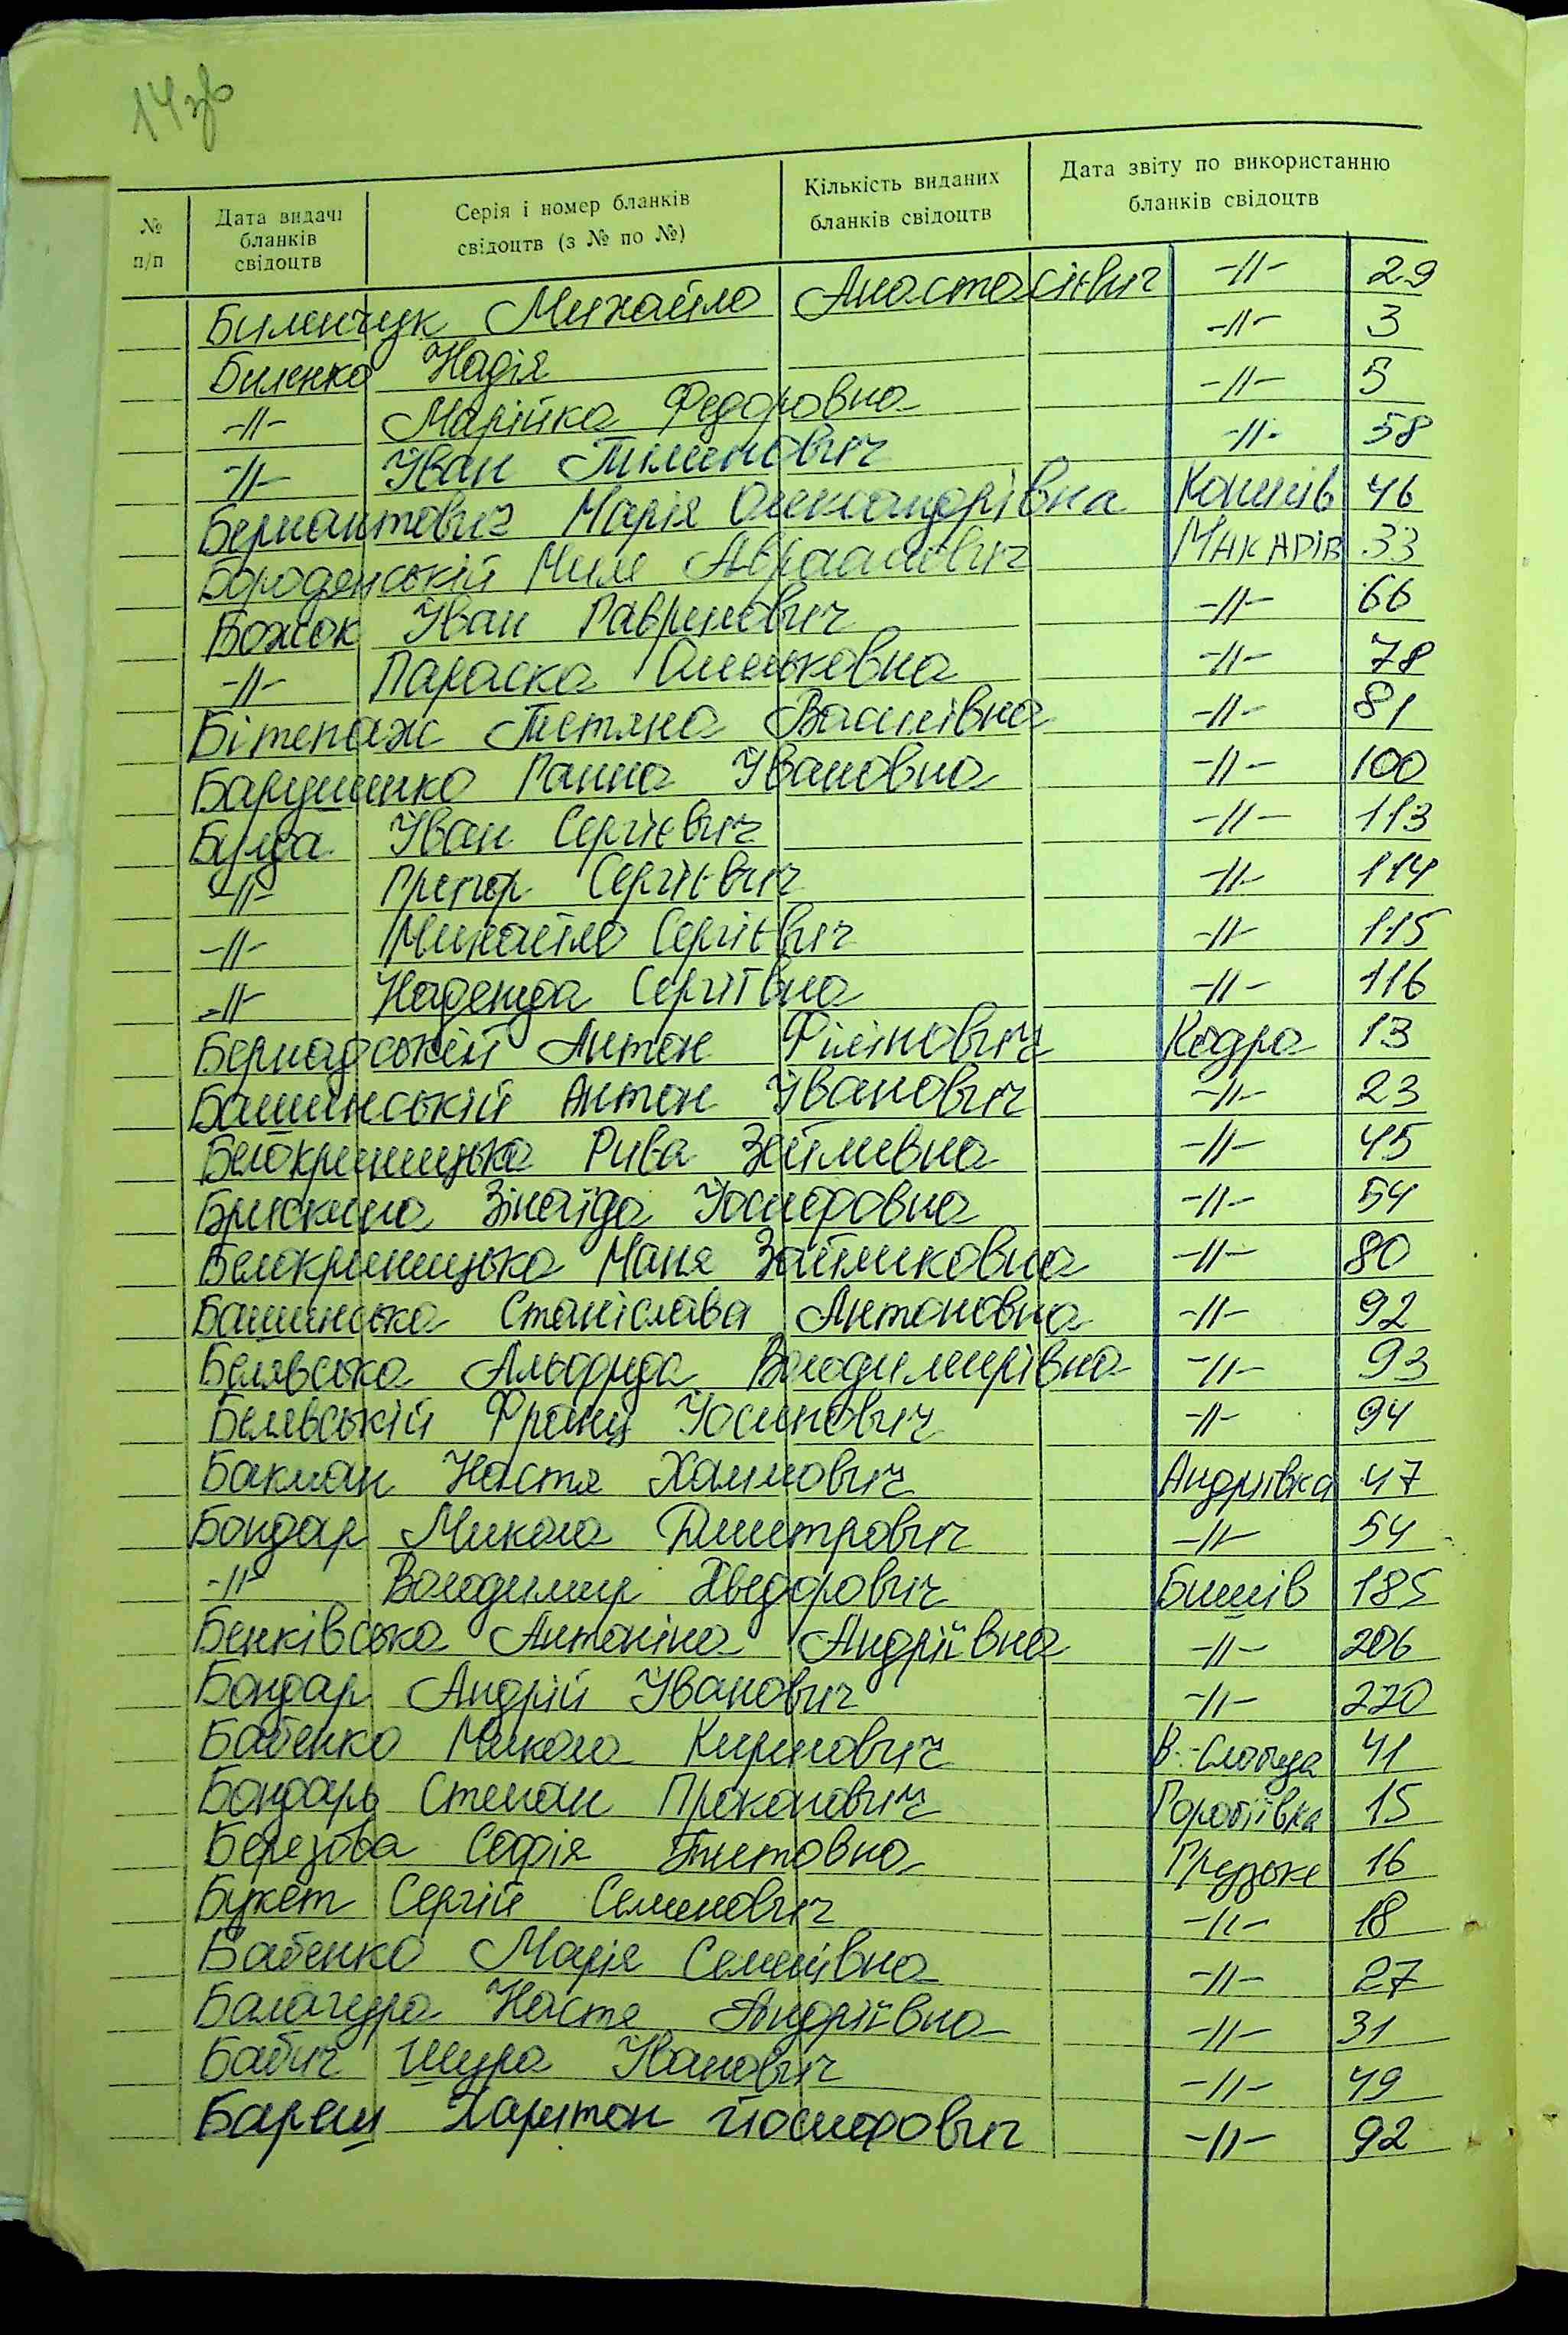 14 зв
№ п/п
Дата видачі бланків свідоцтв
Серія і номер бланків свідоцтв (з № по №)
Кількість виданих бланків свідоцтв
Дата звіту по використанню бланків свідоцтв
Биленчук Михайло Анастасієвич -//- 29
Биленко Надія -//- 3
-//- Марійка Федоровна -//- 5
-//- Іван Пилипович -//- 58
Бернатович Марія Олександрівна Копилів 46
Бороденський Авраамович МАКАРІВ 33
Божок Іван Гаврилович -//- 66
-//- Параска Олельковна -//- 78
Тетяна Василівна -//- 81
Ганна Івановна -//- 100
Буда Іван Сергієвич -//- 113
-//- Григор Сергієвич -//- 114
-//- Михайло Сергієвич -//- 115
-//- Надежда Сергіївна -//- 116
Бернадський Антон Філіпович Кодра 13
Башинській Антон Іванович -//- 23
Белокриницька Рива Зейливна -//- 45
Брискина Зінаїда Йосифовна -//- 54
Белокриницька Маня Зайликовна -//- 80
Башинська Станіслава Антоновна -//- 92
Белявська Володимирівна -//- 93
Белявській Франц Йосипович -//- 94
Бакман Настя Хаимович Андріївка 47
Бондар Микола Дмитрович -//- 54
-//- Володимир Хведорович Бишів 185
Бенківська Антоніна Андріївна -//- 206
Бондар Андрій Іванович -//- 220
Бабенко Микола Кирилович В.-Слобода 41
Бондарь Степан Прокопович Горобіївка 15
Березова Софія Титовна Грузьке 16
Букет Сергій Семенович -//- 18
Бабенко Марія Семенівна -//- 27
Балагура Настя Андріївна -//- 31
Бабич Шура Іванович -//- 49
Бариш Харитон Йосифович -//- 92